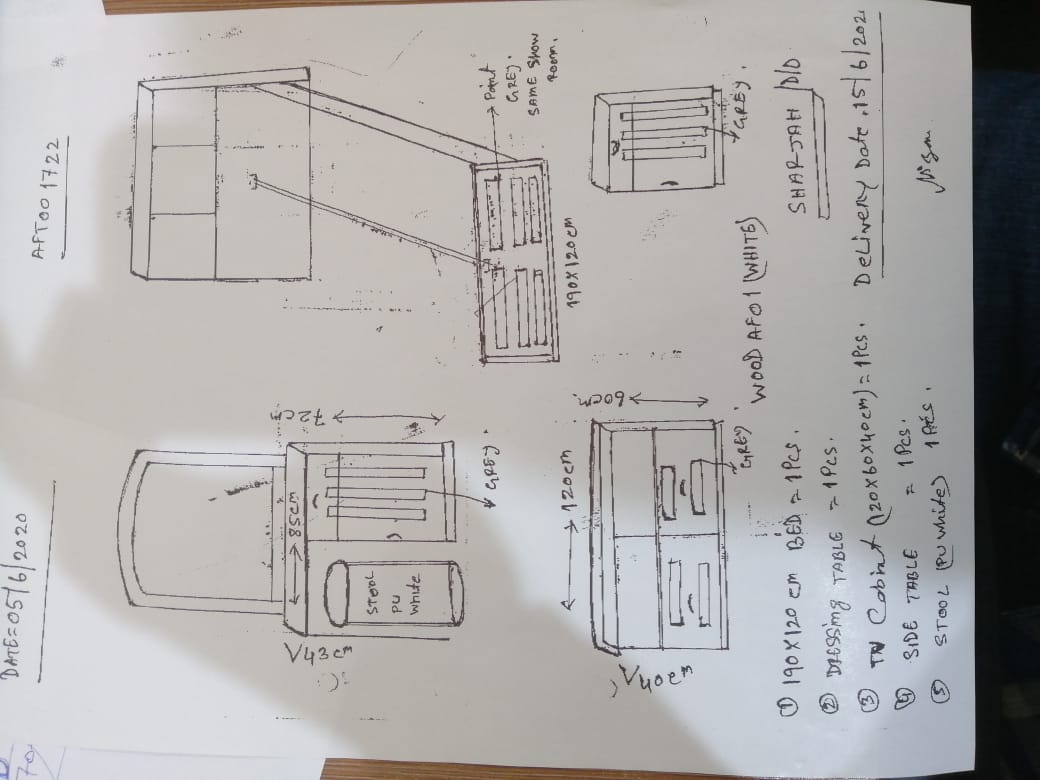 DATE=05/6/2020
AFT00 1722
85cm
V43cm
72cm
STOOL
PU
white
GREY.
Paint
GREY.
SAME SHOW
ROOM.
190X120cm
120cm
V40cm
60cm
GREY
GREY.
WOOD AF01 (WHITE)
① 190X120 cm BED = 1Pcs.
② DRESSing TABLE = 1Pcs.
③ TV Cobint (120X60X40cm) = 1Pcs.
④ SIDE TABLE = 1Pcs.
⑤ STOOL (PU white) 1Pcs.
SHARJAH D/D
Delivery Date.15/6/202